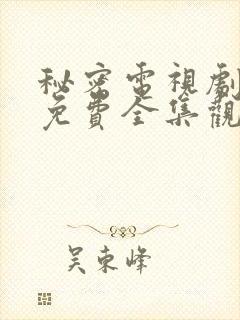 秘密電視劇
免費全集觀
吴東峰